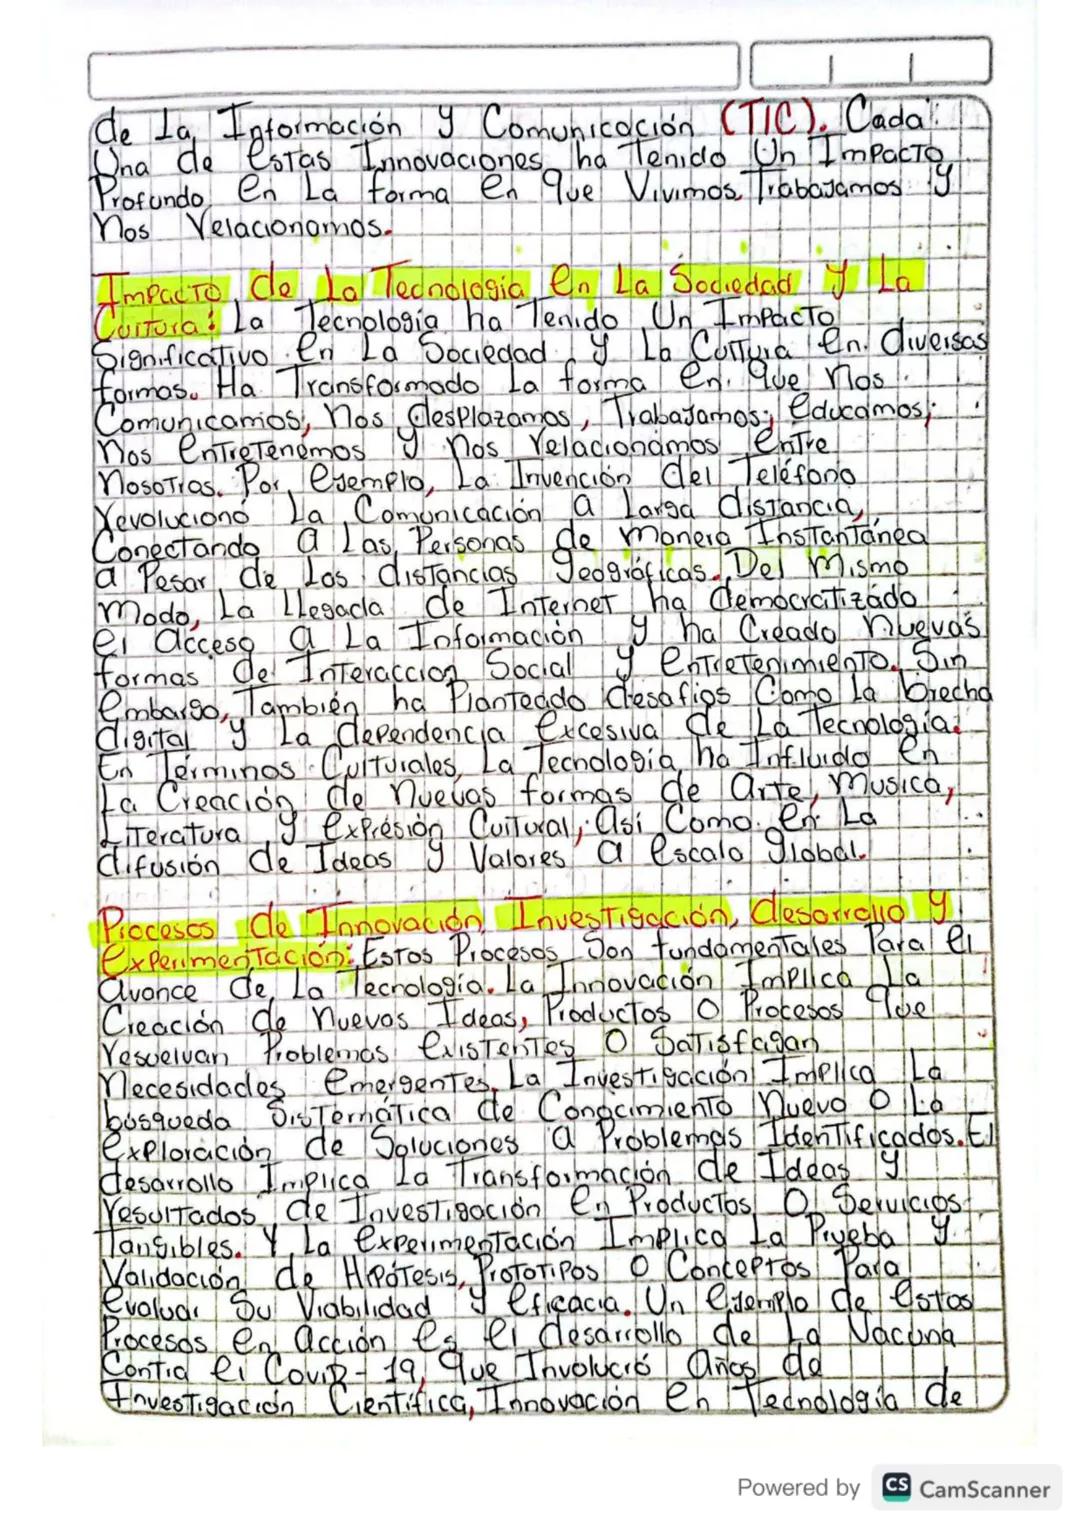 de La Información y Comunicación (TIC). Cada
Una de estas Innovaciones ha Tenido Un Impacto
Profundo en La forma en que Vivimos, Trabajamos y
nos relacionamos.
Impacto de La Tecnología en La Sociedad y La
Cultura: La Tecnología ha Tenido Un Impacto
Significativo en La Sociedad y La Cultura en diversas
formas. Ha Transformado La forma en que nos
Comunicamos, nos desplazamos, Trabajamos, educamos,
nos entretenemos y nos relacionamos entre
nosotras. Por ejemplo, La Invención del Teléfono
revoluciono La Comunicación a Larga distancia,
Conectando a Las Personas de manera Instantánea
a Pesar de Las distancias geográficas. Del mismo
modo, La llegada de Internet ha democratizado
el acceso a La Información y ha Creado nuevas
formas de Interaccion Social y entretenimiento. Sin
embargo, También ha Planteado desafios Como La brecha
digital y La dependencia excesiva de La Tecnología.
En Términos Culturales, La Tecnología ha Influido en
La Creación de nuevas formas de arte, musica,
Literatura y expresión Cultural, así Como en La
difusión de Ideas y Valores a escala global.
Procesos de Innovación, Investigación, desarrollo y
experimentación: Estos Procesos Son fundamentales Para el
avance de La Tecnología. La Innovación Implica La
Creación de nuevas Ideas, Productos o Procesos que
resuelvan Problemas existentes o Satisfagan
necesidades emergentes. La Investigación Implica La
búsqueda Sistemática de Conocimiento nuevo o La
exploración de Soluciones a Problemas Identificados. El
desarrollo Implica La Transformación de Ideas y
resultados de Investigación en Productos o Servicios
Tangibles. Y La experimentación Implica La Prueba y
Validación de Hipótesis, Prototipos o Conceptos Para
evaluar Su Viabilidad y eficacia. Un ejemplo de estos
Procesos en acción es el desarrollo de La Vacuna
Contra el CoviD-19, que Involucró años de
Investigación Científica, Innovación en Tecnología de
Powered by CS CamScanner